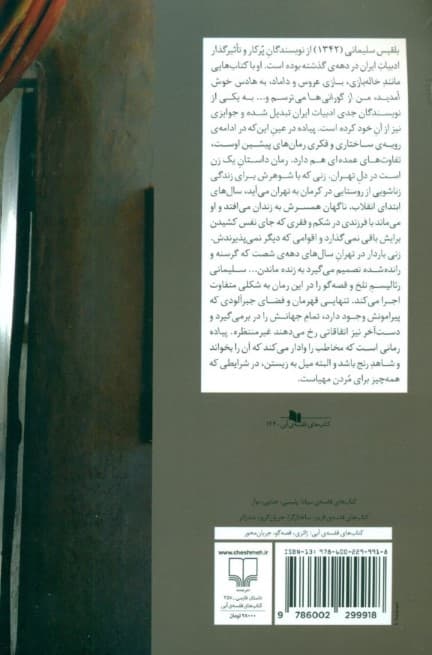 بلقیس سلیمانی (۱۳۴۲) از نویسندگانِ پُرکار و تأثیرگذار
ادبیات ایران در دهه‌ی گذشته بوده است. او با کتاب‌هایی
مانندِ خاله‌بازی، بازی عروس و داماد، به هادس خوش
آمدید، من از گورانی‌ها می‌ترسم و... به یکی از
نویسندگان جدی ادبیات ایران تبدیل شده و جوایزی
نیز از آنِ خود کرده است. پیاده در عین این‌که در ادامه‌ی
رویه‌ی ساختاری و فکری رمان‌های پیشین اوست،
تفاوت‌های عمده‌ای هم دارد. رمان داستانِ یک زن
است در دلِ تهران. زنی که با شوهرش برای زندگی
زناشویی از روستایی در کرمان به تهران می‌آید، سال‌های
ابتدای انقلاب، ناگهان همسرش به زندان می‌افتد و او
می‌ماند با فرزندی در شکم و فقری که جای نفس کشیدن
برایش باقی نمی‌گذارد و اقوامی که دیگر نمی‌پذیرندش.
زنی باردار در تهرانِ سال‌های دهه‌ی شصت که گرسنه و
رانده‌شده تصمیم می‌گیرد به زنده ماندن... سلیمانی
رئالیسمِ تلخ و قصه‌گو را در این رمان به شکلی متفاوت
اجرا می‌کند. تنهایی قهرمان و فضای جبرآلودی که
پیرامونش وجود دارد، تمام جهانش را در برمی‌گیرد و
دستِ‌آخر نیز اتفاقاتی رخ می‌دهند غیرمنتظره. پیاده
رمانی است که مخاطب را وادار می‌کند که آن را بخواند
و شاهدِ رنج باشد و البته میل به زیستن، در شرایطی که
همه‌چیز برای مُردن مهیاست.
کتاب‌های قفسه‌ی آبی
کتاب‌های قفسه‌ی آبی: ژانری، قصه‌گو، جریان‌محور
www.cheshmeh.ir
ISBN-13: 978-600-229-991-8
داستان فارسی
کتاب‌های قفسه‌ی آبی
تومان
9 786002 299918